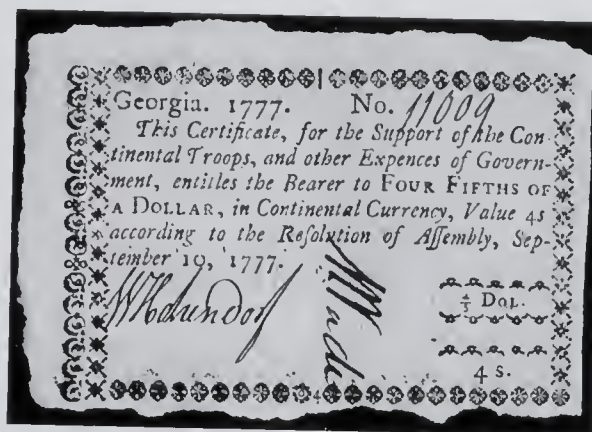 Georgia. 1777. No. 11009
This Certificate, for the Support of the Con-
tinental Troops, and other Expences of Govern-
ment, entitles the Bearer to FOUR FIFTHS OF
A DOLLAR, in Continental Currency, Value 4s
according to the Resolution of Assembly, Sep-
tember 10, 1777.
⅘ DOL.
4 s.